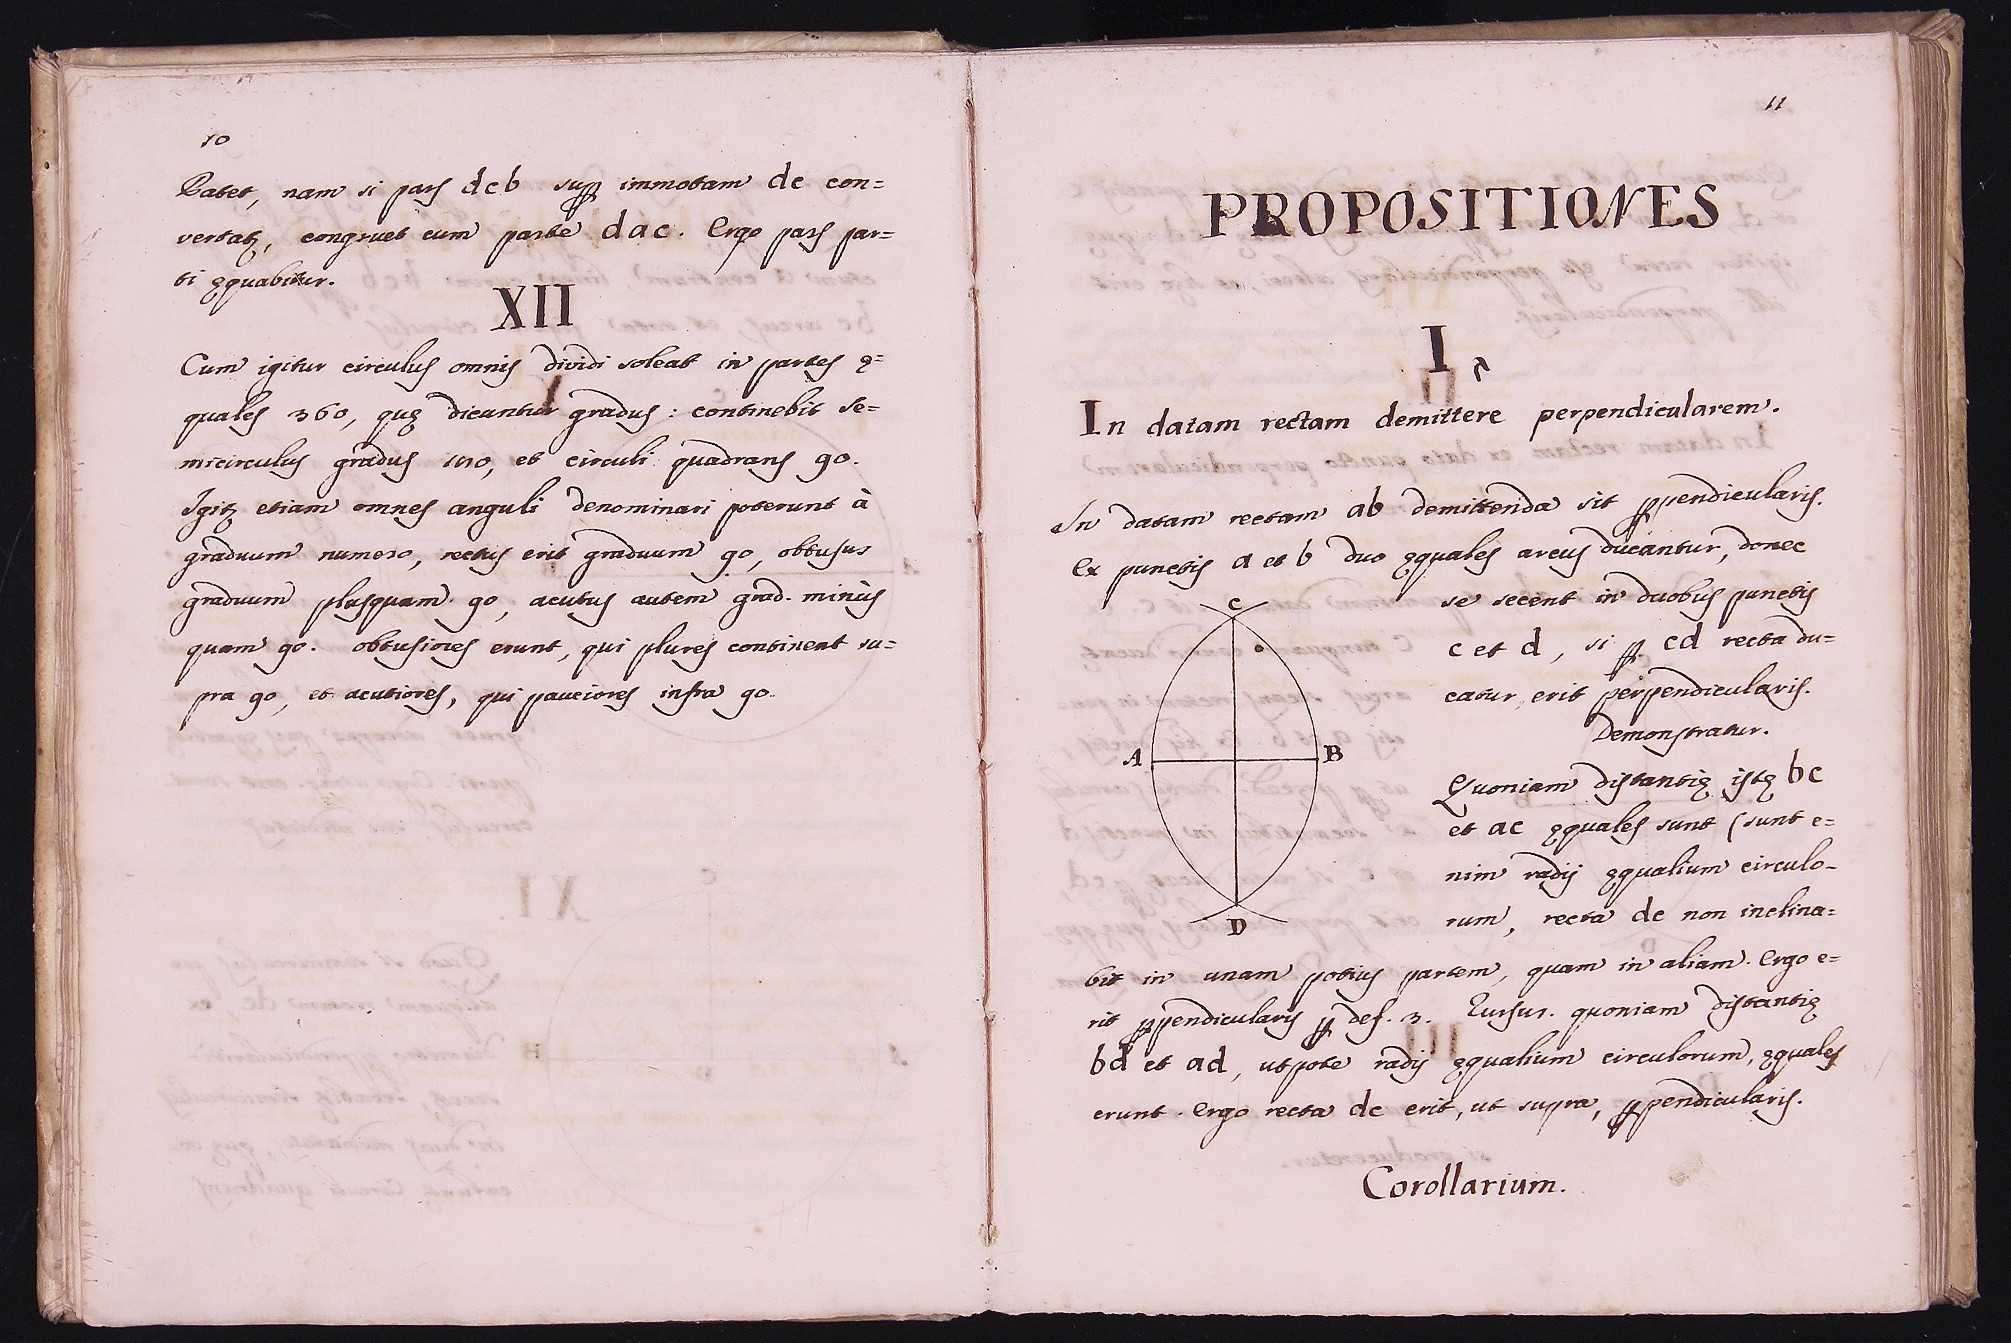 10
Patet, nam si pars dcb supp immotam dc con=
vertatz, congruet cum parte dac. Ergo pars par=
ti ęquabitur.
XII
Cum igitur circulus omnis dividi soleat in partes ę=
quales 360, quę dicantur gradus: continebit se=
micirculus gradus 180, et circuli quadrans 90.
Igitz etiam omnes anguli denominari poterunt à
graduum numero, rectus erit graduum 90, obtusus
graduum plusquam 90, acutus autem grad. minùs
quam 90. obtusiores erunt, qui plures continent su=
pra 90, et acutiores, qui pauciores infra 90.
11
PROPOSITIONES
I
In datam rectam demittere perpendicularem.
In datam rectam ab demittenda sit ꝑpendicularis.
Ex punctis a et b duo ęquales arcus ducantur, donec
se secent in duobus punctis
c et d, si ꝑ cd recta du=
catur, erit perpendicularis.
Demonstratur.
Quoniam distantię istę bc
et ac ęquales sunt (sunt e=
nim radij ęqualium circulo-
rum, recta dc non inclina=
bit in unam potius partem, quam in aliam. Ergo e=
rit ꝑpendicularis ꝑ def. 3. Rursus. quoniam distantię
bd et ad, utpote radij ęqualium circulorum, ęquales
erunt. Ergo recta dc erit, ut supra, ꝑpendicularis.
C
A
B
D
Corollarium.